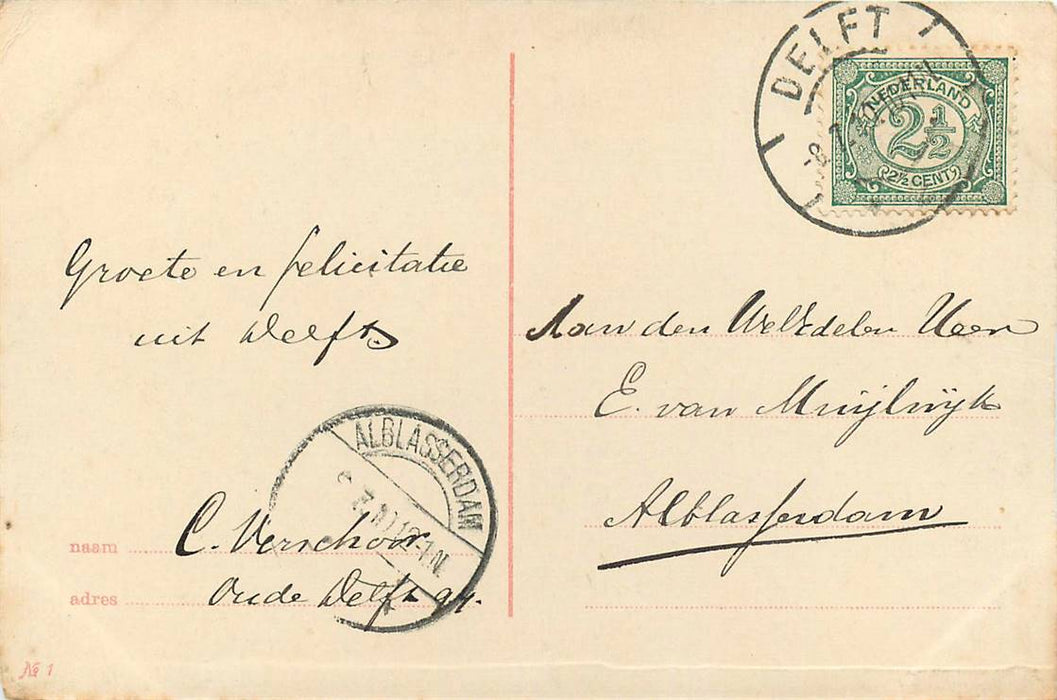 DELFT
NEDERLAND
2½
2½ CENT
Groete en felicitatie
uit Delft
Aan den WelEdelen Heer
E. van Muijlwijk
Alblasserdam
ALBLASSERDAM
12-1N
naam C. Verschoor
adres Oude Delft 94.
№ 1